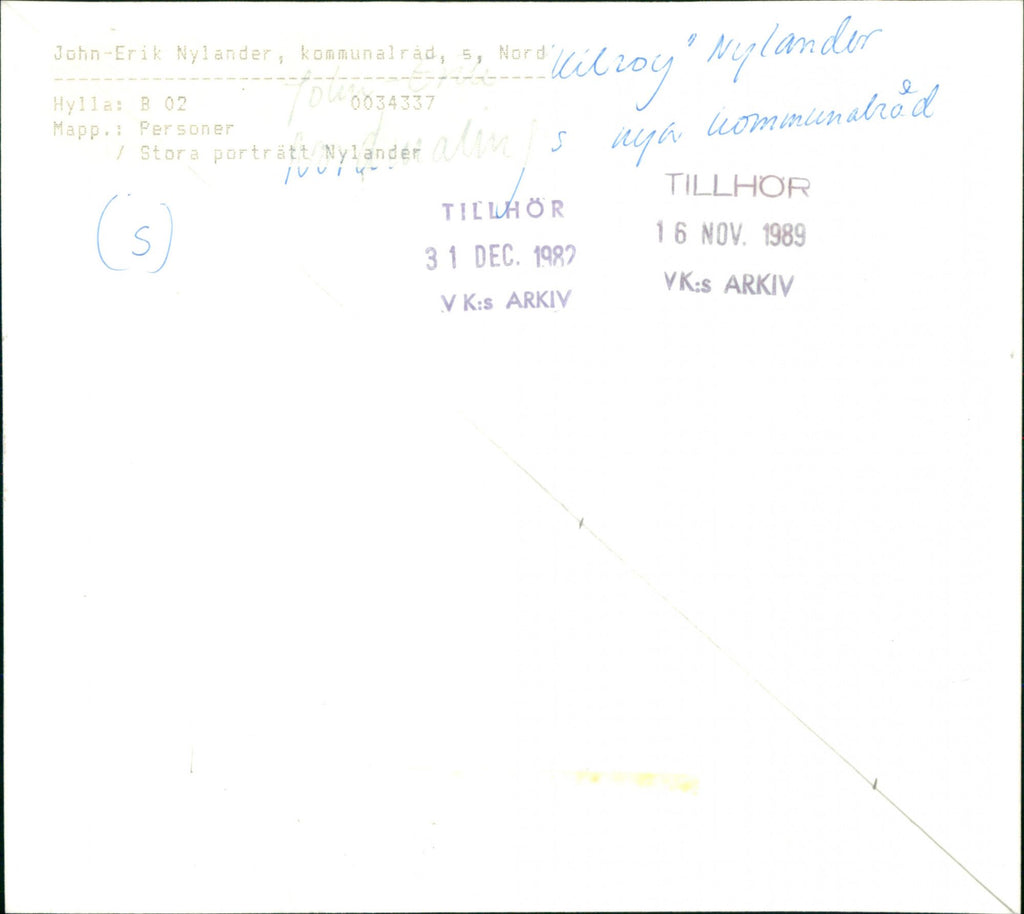 John-Erik Nylander, kommunalråd, s, Nord
Hylla: B 02 0034337
Mapp.: Personer
/ Stora porträtt Nylander
John-Erik "Kilroy" Nylander
Nordmaling s nya kommunalråd
(s)
TILLHÖR
31 DEC. 1982
VK:s ARKIV
TILLHÖR
16 NOV. 1989
VK:s ARKIV